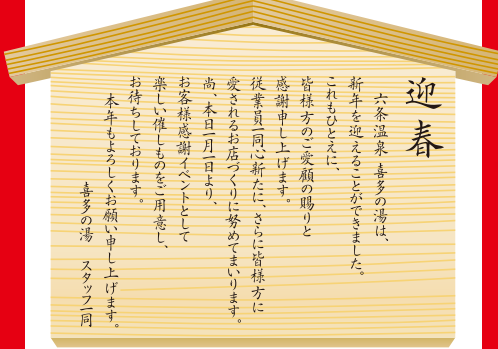 迎春
六条温泉 喜多の湯は、
新年を迎えることができました。
これもひとえに、
皆様方のご愛顧の賜りと
感謝申し上げます。
従業員一同心新たに、さらに皆様方に
愛されるお店づくりに努めてまいります。
尚、本日一月一日より、
お客様感謝イベントとして
楽しい催しものをご用意し、
お待ちしております。
本年もよろしくお願い申し上げます。
喜多の湯 スタッフ一同